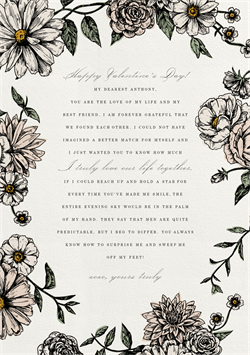 Happy Valentine's Day!
MY DEAREST ANTHONY,
YOU ARE THE LOVE OF MY LIFE AND MY
BEST FRIEND. I AM FOREVER GRATEFUL THAT
WE FOUND EACH OTHER. I COULD NOT HAVE
IMAGINED A BETTER MATCH FOR MYSELF AND
I JUST WANTED YOU TO KNOW HOW MUCH
I truly love our life together,
IF I COULD REACH UP AND HOLD A STAR FOR
EVERY TIME YOU'VE MADE ME SMILE, THE
ENTIRE EVENING SKY WOULD BE IN THE PALM
OF MY HAND. THEY SAY THAT MEN ARE QUITE
PREDICTABLE, BUT I BEG TO DIFFER. YOU ALWAYS
KNOW HOW TO SURPRISE ME AND SWEEP ME
OFF MY FEET!
xoxo, yours truly